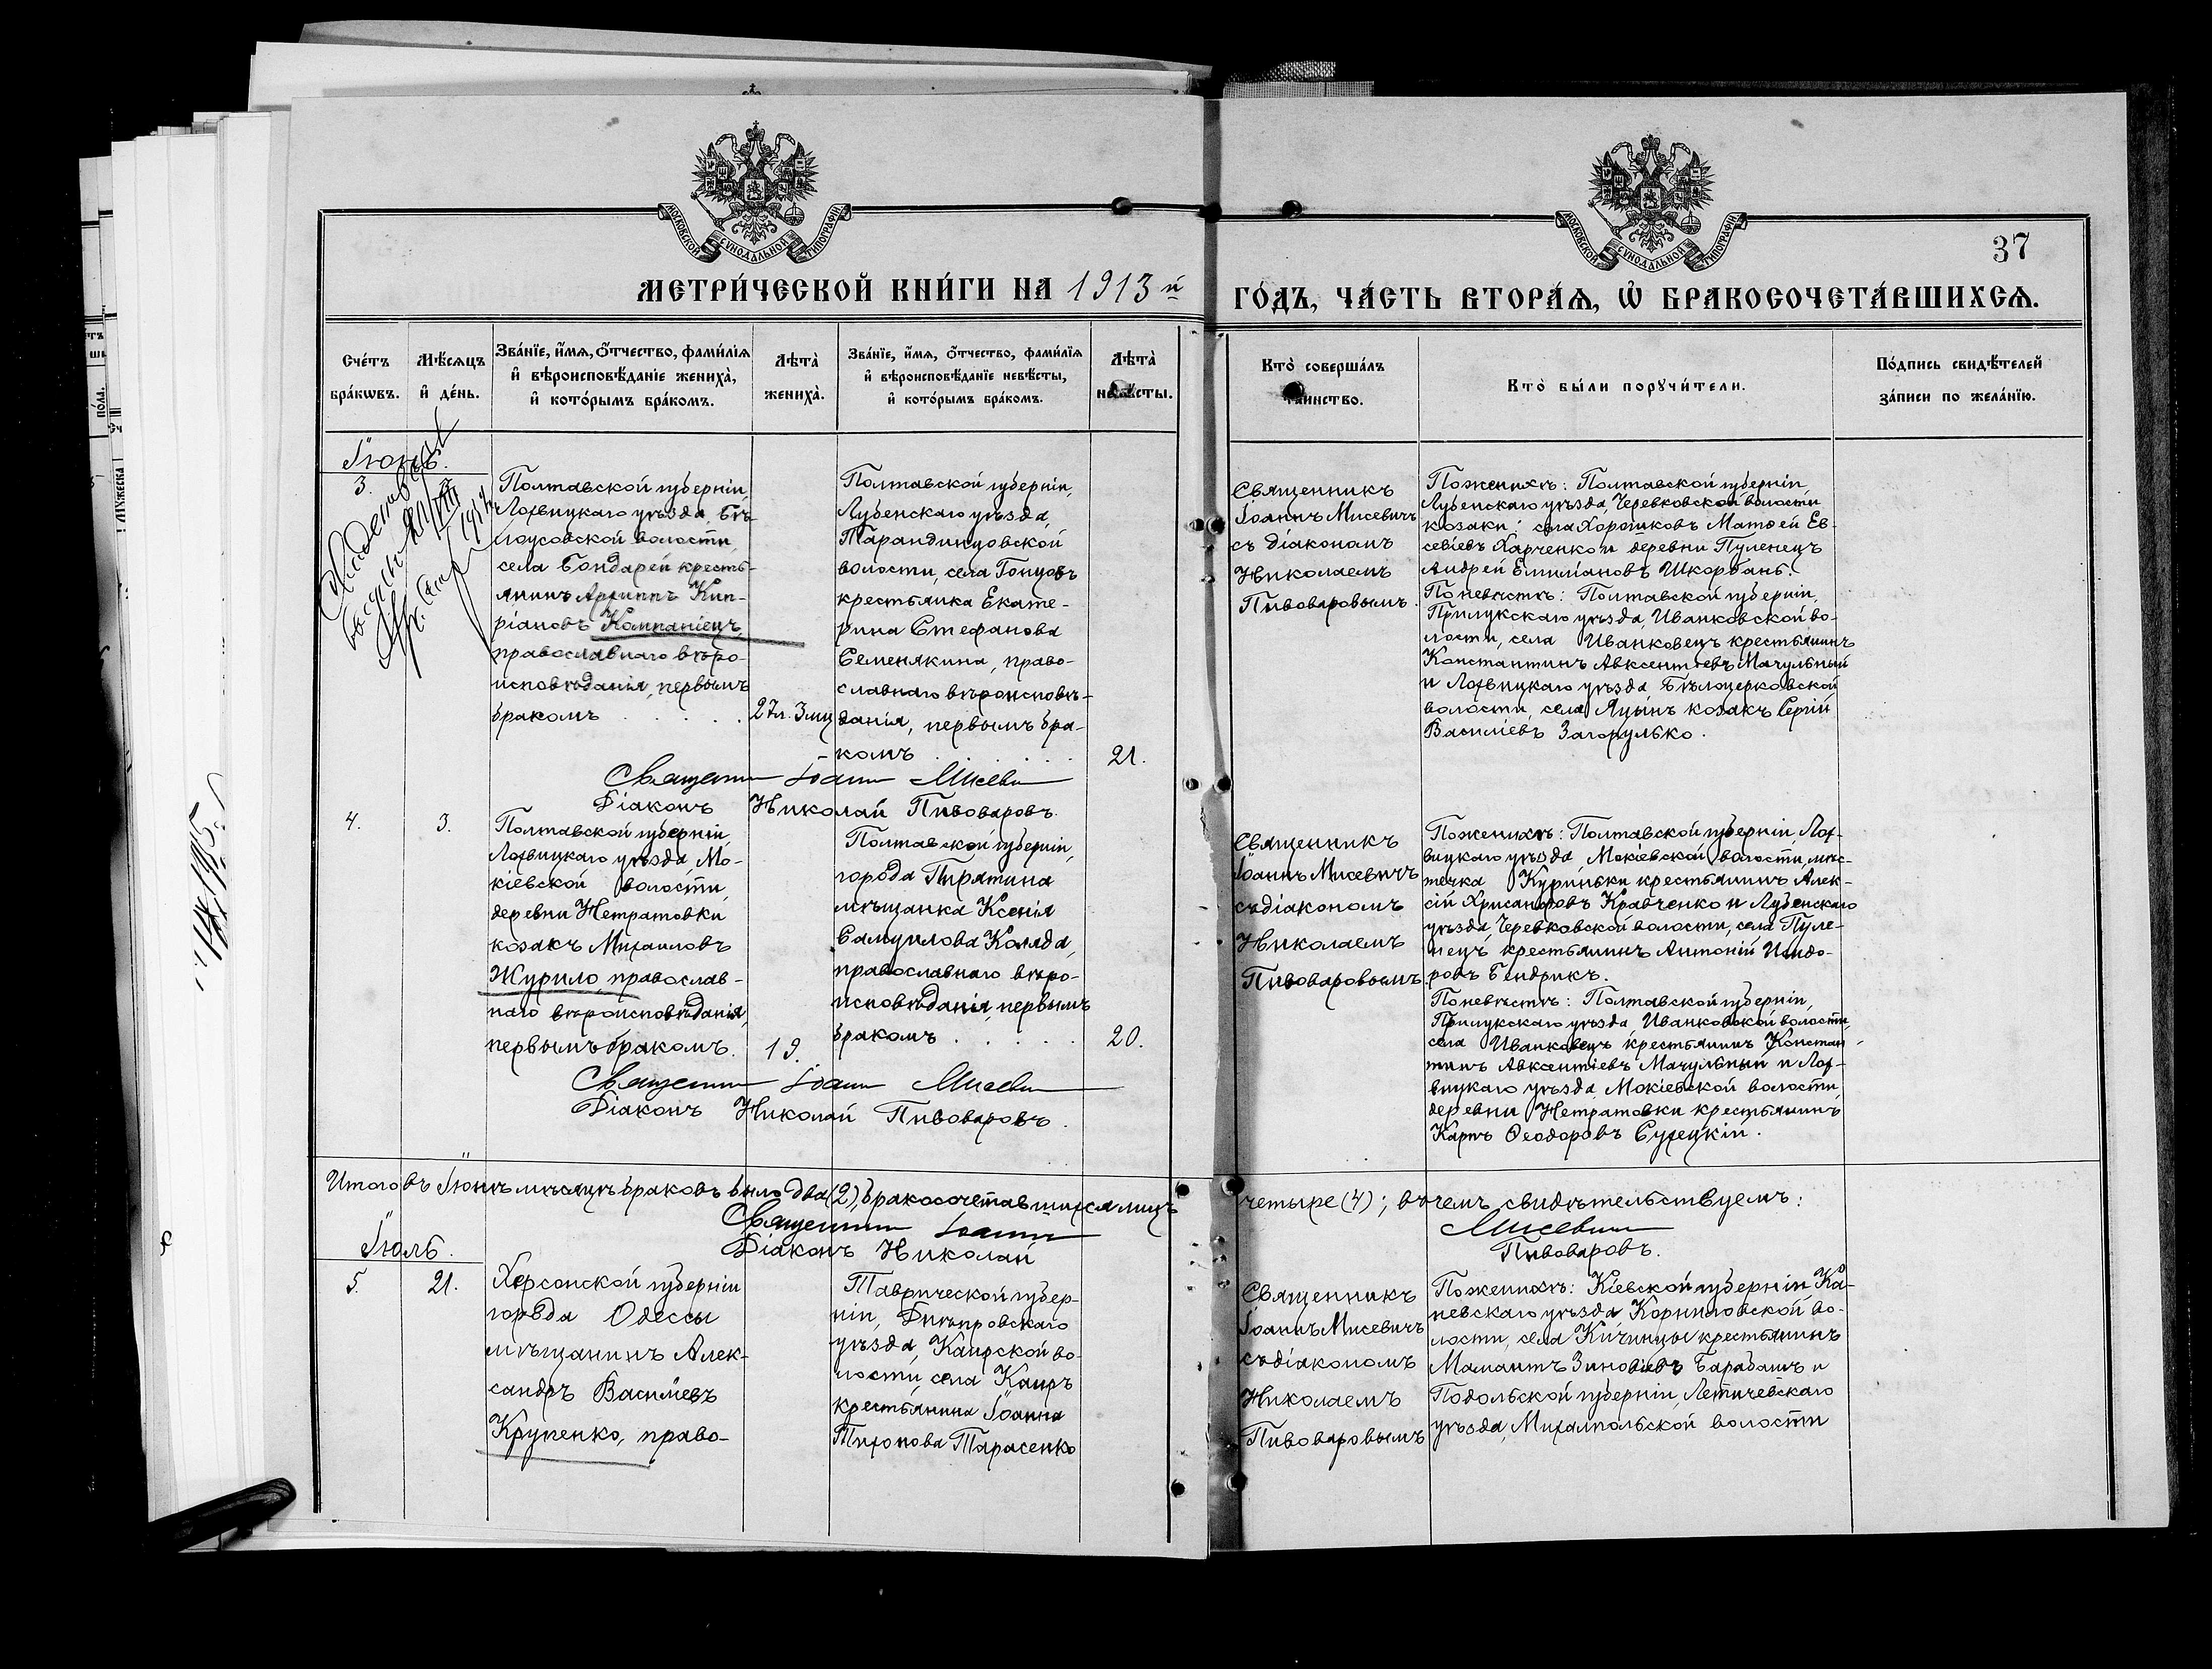 37
МЕТРИ́ЧЕСКОЙ КНИ́ГИ НА 1913 й
ГО́ДЪ, ЧА́СТЬ ВТОРА́Я, Ѿ БРАКОСОЧЕТА́ВШИХСЯ.
МОСКОВСКОЙ СУНОДАЛЬНОЙ ТИПОГРАФІИ
МОСКОВСКОЙ СУНОДАЛЬНОЙ ТИПОГРАФІИ
Сче́тъ
бра́кѡвъ.
Мѣ́сяцъ
и҆ де́нь.
Зва́нїе, и҆́мя, ѻ҆́тчество, фами́лїя
и҆ вѣроисповѣ́данїе жениха̀,
и҆ кото́рымъ бра́комъ.
Лѣта̀
жениха̀.
Зва́нїе, и҆́мя, ѻ҆́тчество, фами́лїя
и҆ вѣроисповѣ́данїе невѣ́сты,
и҆ кото́рымъ бра́комъ.
Лѣта̀
невѣ́сты.
Кто̀ соверша́лъ
таинство.
Кто̀ бы́ли порꙋчи́тели.
По́дпись свидѣ́телей
за́писи по жела́нїю.
Іюнь.
3.
Полтавской губерніи,
Лохвицкаго уѣзда, Бѣ-
лоусовской волости,
села Бондарей кресть-
янинъ Архиппъ Кип-
ріановъ Компаніецъ,
православнаго вѣро-
исповѣданія, первымъ
бракомъ . . . . .
27л. 3 мц
Полтавской губерніи,
Лубенскаго уѣзда,
Тарандинцовской
волости, села Гонцовъ
крестьянка Екате-
рина Стефанова
Семенякина, право-
славнаго вѣроисповѣ-
данія, первымъ бра-
комъ . . . . . .
21.
Священникъ
Іоаннъ Мисевичъ
съ діакономъ
Николаемъ
Пивоваровымъ.
По женихѣ: Полтавской губерніи,
Лубенскаго уѣзда, Черевковской волости
козаки: села Хорошковъ Матѳей Ев-
севіевъ Харченко и деревни Пуленецъ
Андрей Емиліановъ Шкорбань.
По невѣстѣ: Полтавской губерніи,
Прилукскаго уѣзда, Иванковской во-
лости, села Иванковецъ крестьянинъ
Константинъ Авксентіевъ Мачульный
и Лохвицкаго уѣзда, Бѣлоцерковской
волости, села Яцынъ козакъ Сергій
Василіевъ Загорулько.
Священникъ Іоаннъ Мисевичъ
Діаконъ Николай Пивоваровъ.
4.
3.
Полтавской губерніи,
Лохвицкаго уѣзда, Мо-
кіевской волости,
деревни Нетратовки
козакъ Михаиловъ
Журило, православ-
наго вѣроисповѣданія,
первымъ бракомъ.
19.
Полтавской губерніи,
города Пирятина
мѣщанка Ксенія
Самуилова Коляда,
православнаго вѣро-
исповѣданія, первымъ
бракомъ . . . . .
20.
Священникъ
Іоаннъ Мисевичъ
съ діакономъ
Николаемъ
Пивоваровымъ.
По женихѣ: Полтавской губерніи, Лох-
вицкаго уѣзда, Мокіевской волости, мѣс-
течка Куриньки крестьянинъ Алек-
сій Хрисанфовъ Кравченко и Лубенскаго
уѣзда, Черевковской волости, села Пуле-
нецъ крестьянинъ Антоній Исидо-
ровъ Бендрикъ.
По невѣстѣ: Полтавской губерніи,
Прилукскаго уѣзда, Иванковской волости,
села Иванковецъ крестьянинъ Констан-
тинъ Авксентіевъ Мачульный и Лох-
вицкаго уѣзда, Мокіевской волости,
деревни Нетратовки крестьянинъ
Карпъ Ѳеодоровъ Сухецкій.
Священникъ Іоаннъ Мисевичъ
Діаконъ Николай Пивоваровъ.
Итого въ Іюнѣ мѣсяцѣ браковъ было два (2), бракосочетавшихся лицъ четыре (4); въ чемъ свидѣтельствуемъ:
Священникъ Іоаннъ Мисевичъ
Діаконъ Николай Пивоваровъ.
Іюль.
5.
21.
Херсонской губерніи
города Одессы
мѣщанинъ Алек-
сандръ Василіевъ
Крупенко, право-
Таврической губер-
ніи, Днѣпровскаго
уѣзда, Каирской во-
лости, села Каиръ
крестьянина Іоанна
Тихонова Тарасенко
Священникъ
Іоаннъ Мисевичъ
съ діакономъ
Николаемъ
Пивоваровымъ
По женихѣ: Кіевской губерніи, Ка-
невскаго уѣзда, Корниловской во-
лости, села Кичинцы крестьянинъ
Мамантъ Зиновіевъ Барабашъ и
Подольской губерніи, Летичевскаго
уѣзда, Михалпольской волости